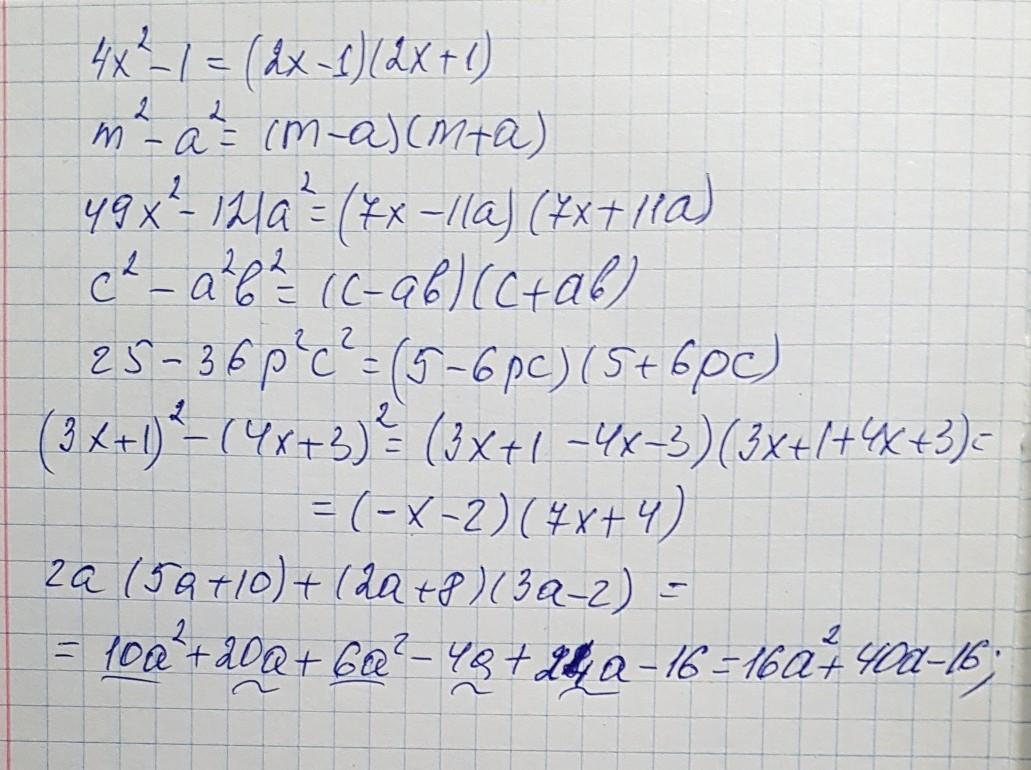 4x² - 1 = (2x - 1)(2x + 1)
m² - a² = (m - a)(m + a)
49x² - 121a² = (7x - 11a)(7x + 11a)
c² - a²в² = (c - aв)(c + aв)
25 - 36p²c² = (5 - 6pc)(5 + 6pc)
(3x + 1)² - (4x + 3)² = (3x + 1 - 4x - 3)(3x + 1 + 4x + 3) =
= (-x - 2)(7x + 4)
2a (5a + 10) + (2a + 8)(3a - 2) =
= 10a² + 20a + 6a² - 4a + 24a - 16 = 16a² + 40a - 16;